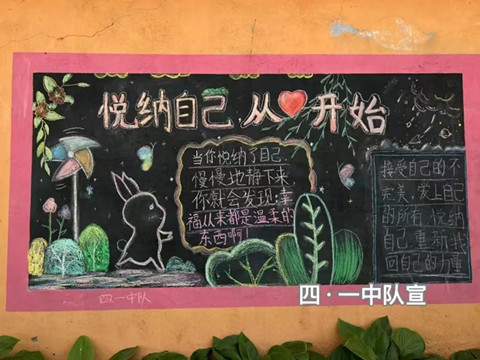 悦纳自己,从❤开始
当你悦纳了自己,
慢慢地静下来,
你就会发现:幸
福从来都是温柔的
东西啊!
接受自己的不
完美,爱上自己
的所有,悦纳
自己,重新找
回自己的力量
四·一中队宣
四一中队